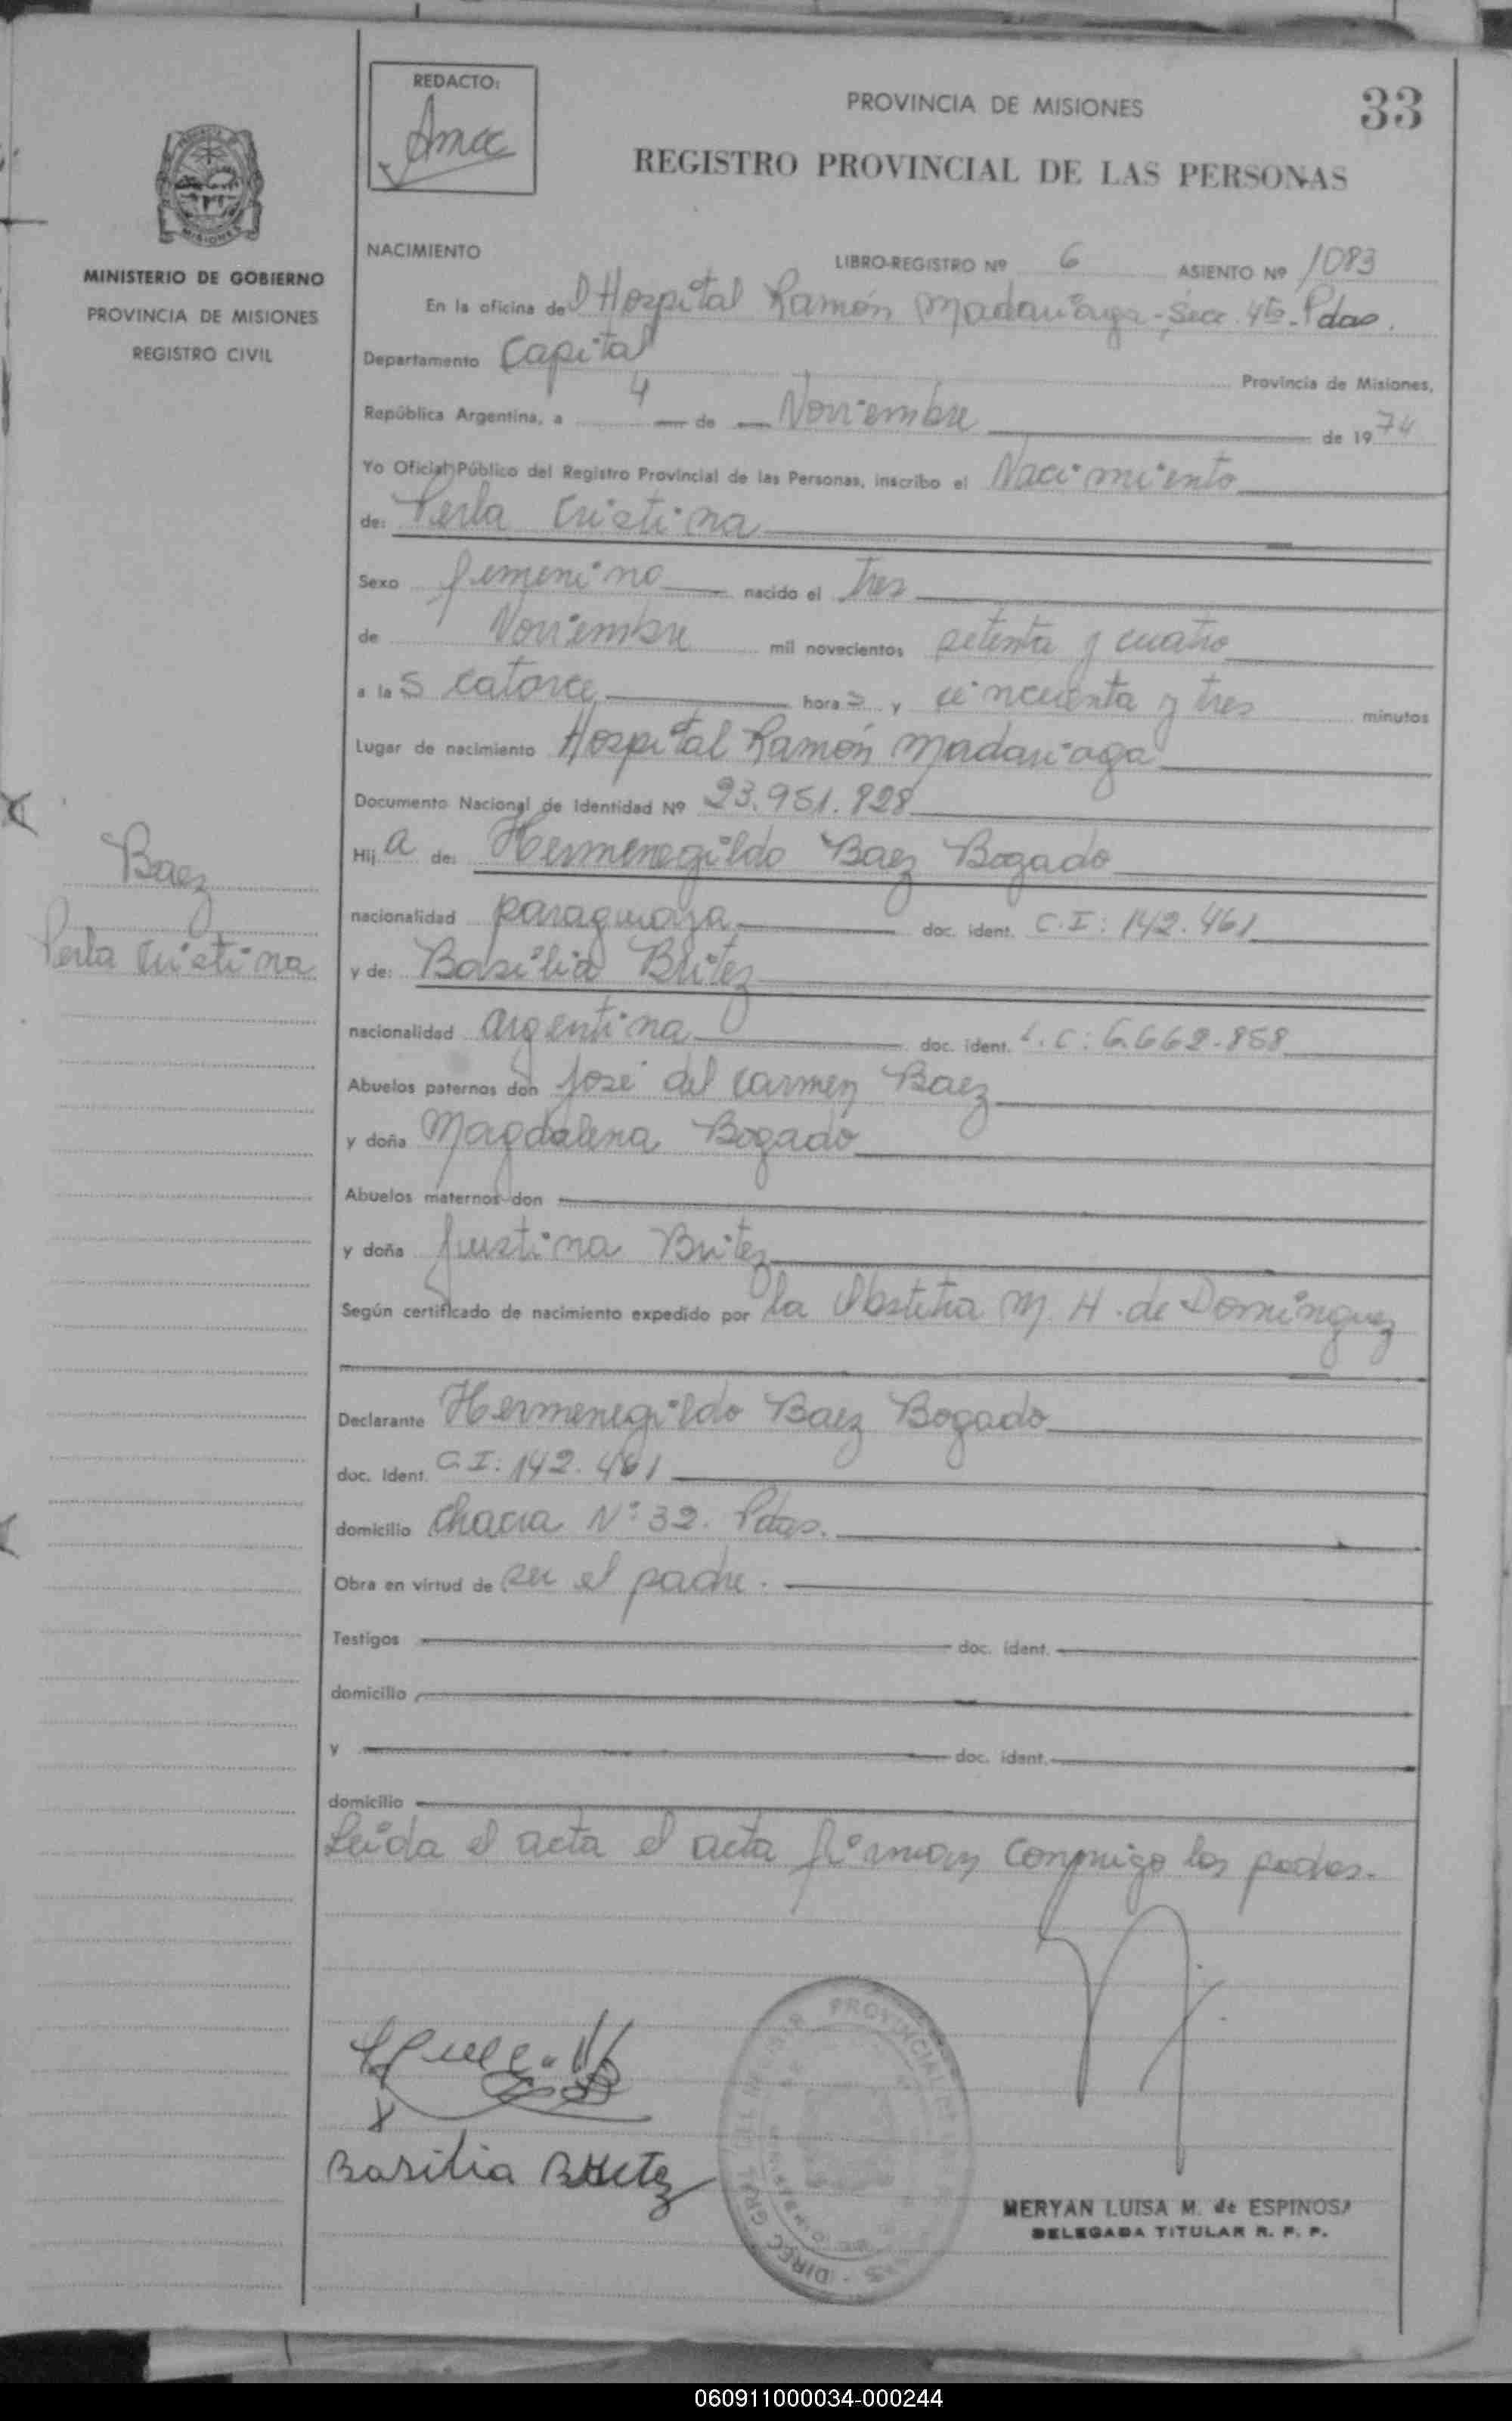 REDACTO:
PROVINCIA DE MISIONES
33
REGISTRO PROVINCIAL DE LAS PERSONAS
MISIONES
MINISTERIO DE GOBIERNO
PROVINCIA DE MISIONES
REGISTRO CIVIL
NACIMIENTO
LIBRO-REGISTRO Nº 6 ASIENTO Nº 1083
En la oficina del Hospital Ramón Madariaga - Secc. 4ta - Pdas.
Departamento Capital Provincia de Misiones,
República Argentina, a 4 de Noviembre de 1974
Yo Oficial Público del Registro Provincial de las Personas, inscribo el Nacimiento
de: Perla Cristina
Sexo femenino nacido el tres
de Noviembre mil novecientos setenta y cuatro
a las catorce horas y cincuenta y tres minutos
Lugar de nacimiento Hospital Ramón Madariaga
Documento Nacional de Identidad Nº 23.951.828
Hija de: Hermenegildo Baez Bogado
Baez
nacionalidad paraguaya doc. ident. C.I: 142.461
Perla Cristina
y de: Basilia Britez
nacionalidad argentina doc. ident. L.C: 6.662.858
Abuelos paternos don José del Carmen Baez
y doña Magdalena Bogado
Abuelos maternos don
y doña Justina Britez
Según certificado de nacimiento expedido por la Obstetra M. H. de Dominguez
Declarante Hermenegildo Baez Bogado
doc. Ident. C.I: 142.461
domicilio Chacra Nº 32. Pdas.
Obra en virtud de ser el padre.
Testigos doc. ident.
domicilio
y doc. ident.
domicilio
Leida el acta el acta firman conmigo los padres.
Basilia Britez
MERYAN LUISA M. de ESPINOSA
DELEGADA TITULAR R. P. P.
060911000034-000244